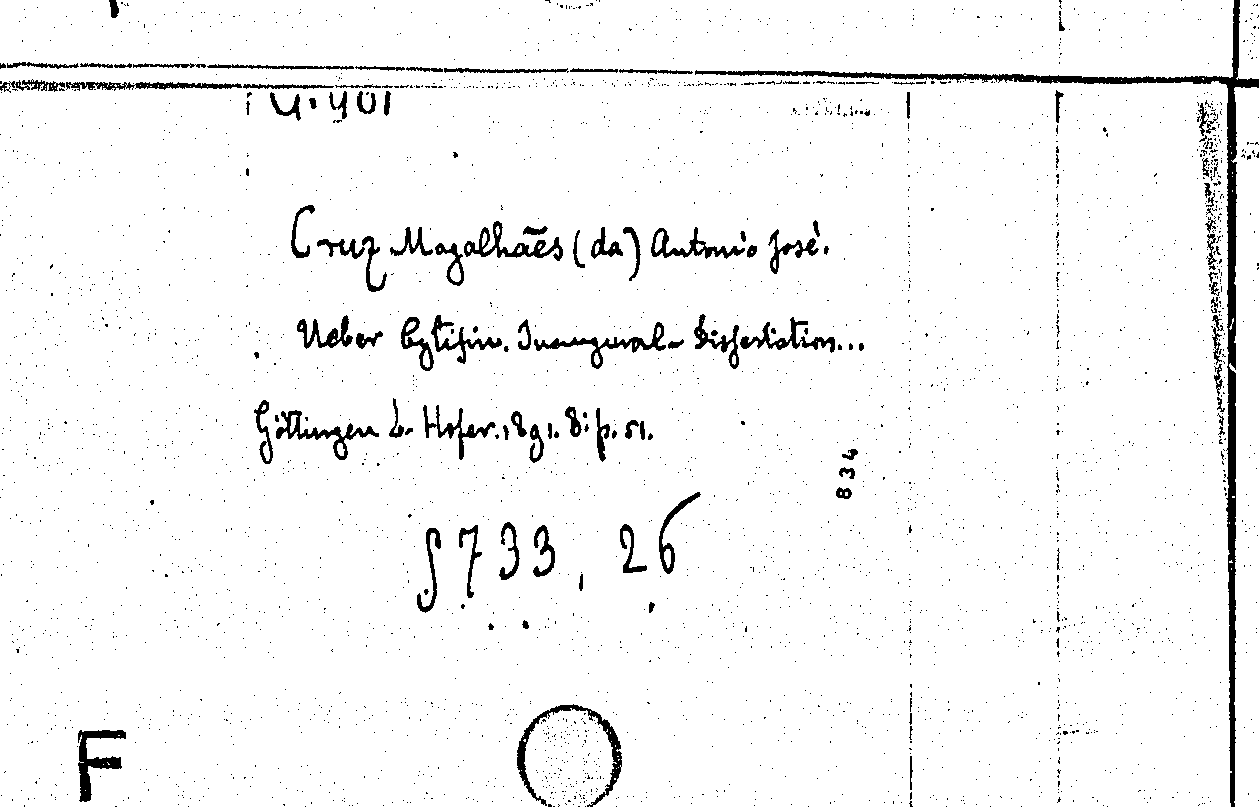 Cruz Magalhães (da) Antonio José.
Ueber Cytisin. Inaugural-Dissertation...
Göttingen L. Hofer. 1891. 8: p. 51.
834
§ 733, 26
F